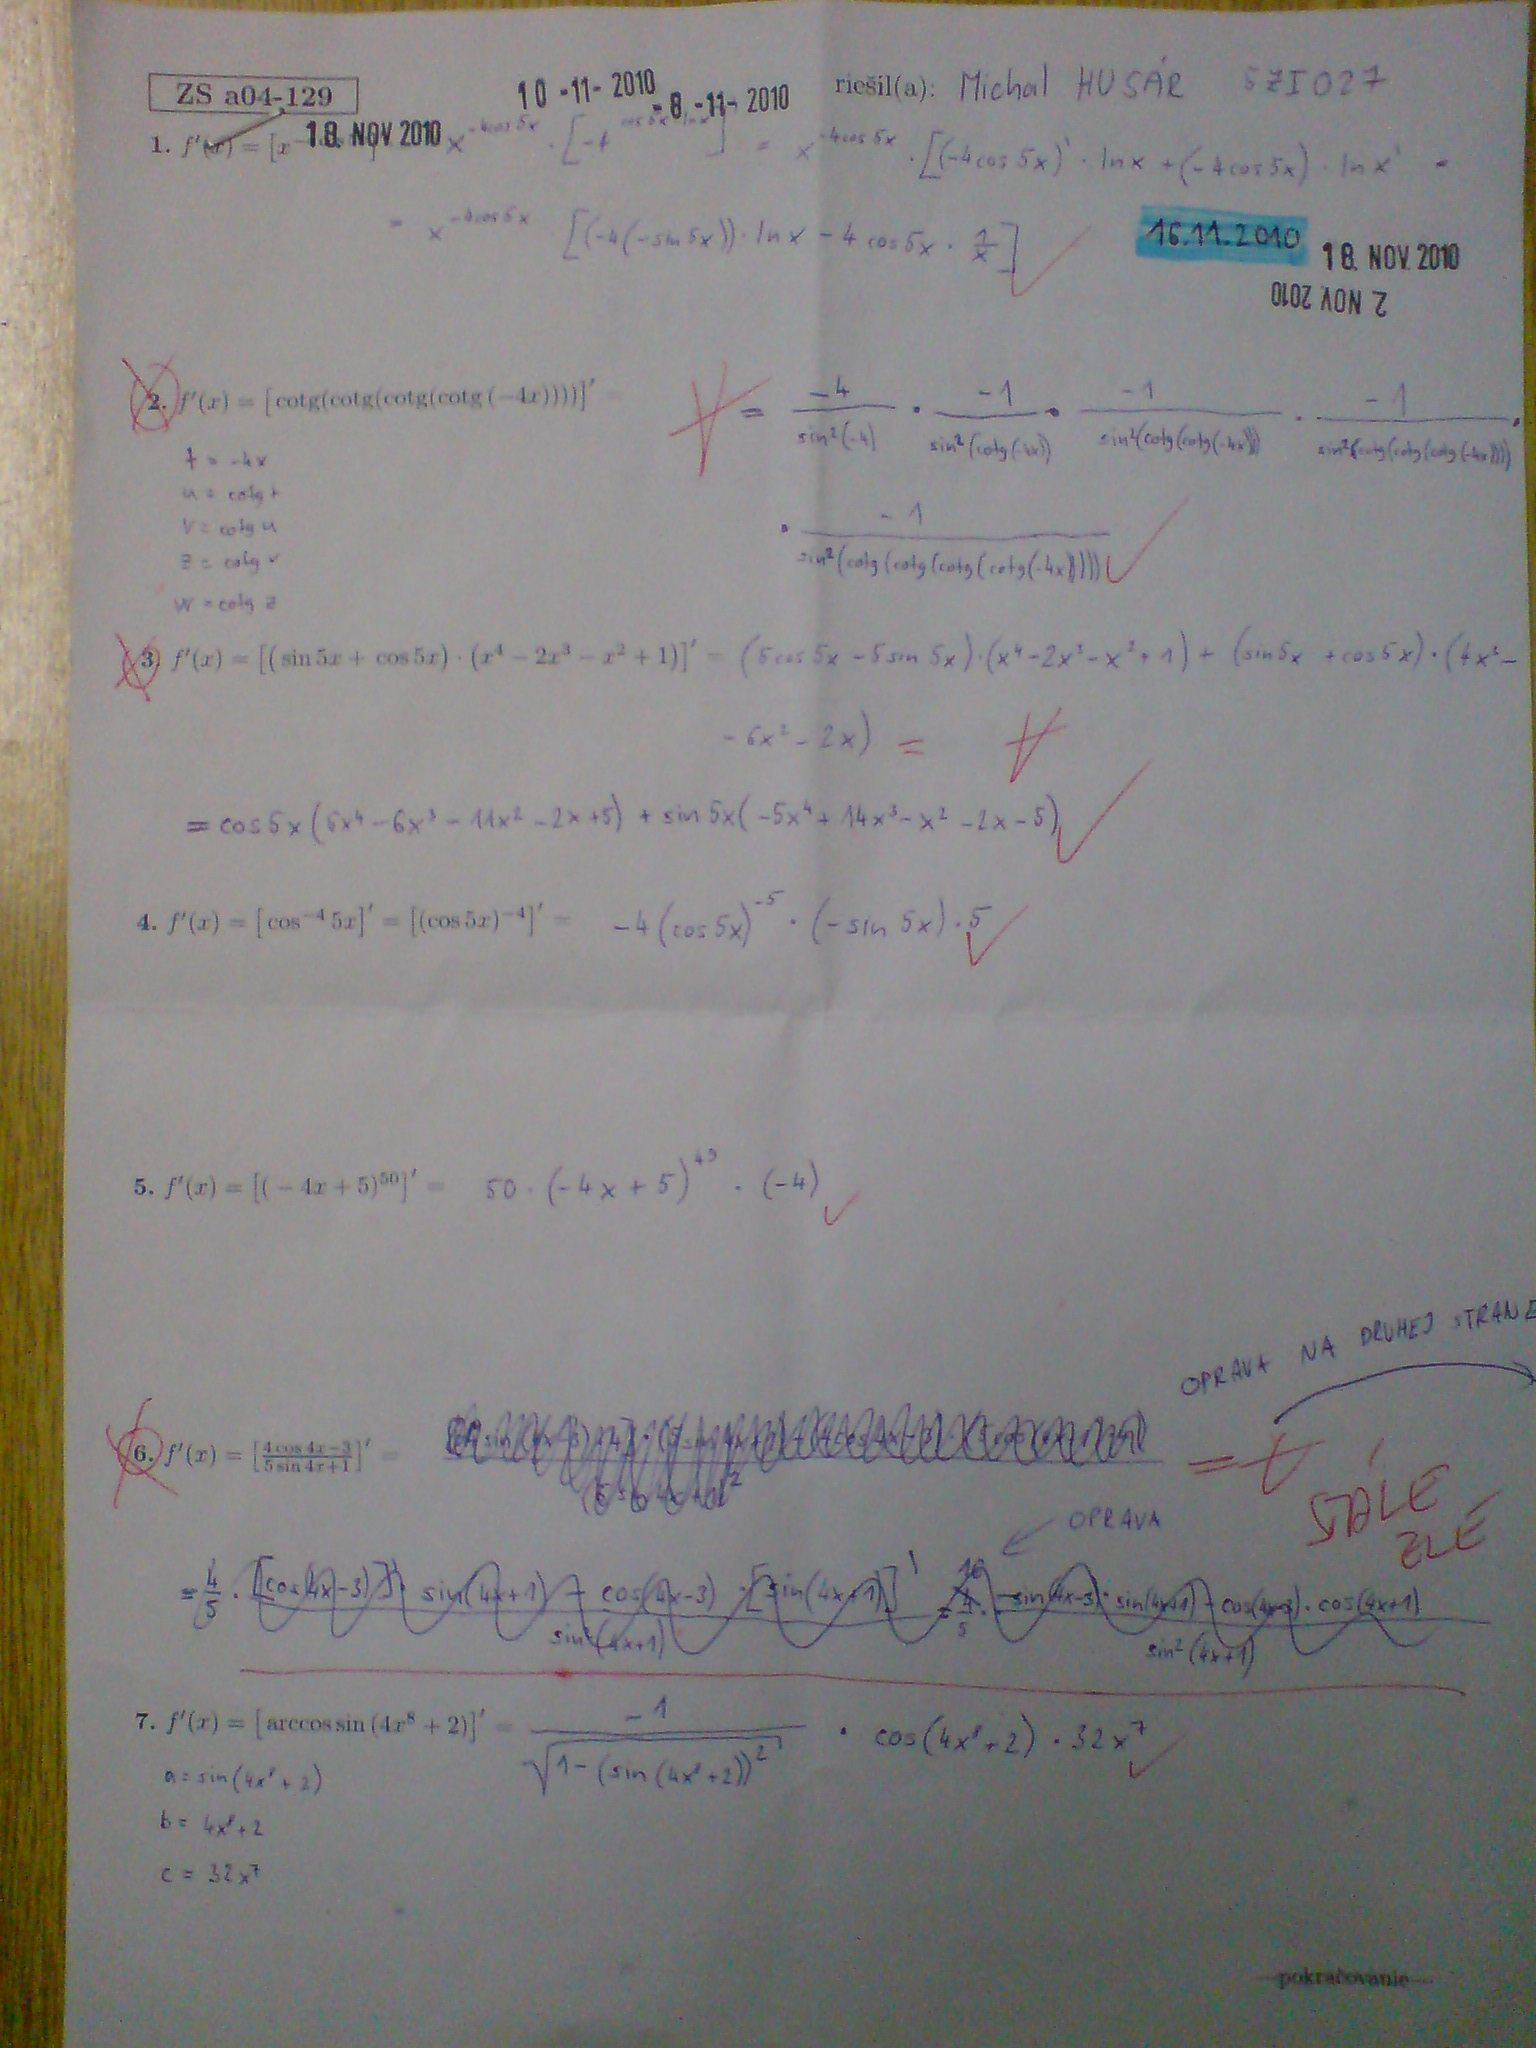 ZS a04-129
10 -11- 2010
-8. -11- 2010
riešil(a): Michal HUSÁR 5ZI027
18. NOV. 2010
1. f'(x) = [x = x^{-4cos 5x} · [ ]' = x^{-4cos 5x} · [(-4cos 5x)' · ln x + (-4cos 5x) · ln x' =
= x^{-4cos 5x} [(-4(-sin 5x)) · ln x - 4 cos 5x · 1/x]
16.11.2010
18. NOV. 2010
2 NOV 2010
2. f'(x) = [cotg(cotg(cotg(cotg (-4x))))]' = = -4/sin²(-4) · -1/sin²(cotg(-4x)) · -1/sin²(cotg(cotg(-4x))) · -1/sin²(cotg(cotg(cotg(-4x)))) ·
t = -4x
u = cotg t
v = cotg u
· -1/sin²(cotg(cotg(cotg(cotg(-4x)))))
z = cotg v
w = cotg z
3. f'(x) = [(sin 5x + cos 5x) · (x⁴ - 2x³ - x² + 1)]' = (5cos 5x - 5sin 5x) · (x⁴ - 2x³ - x² + 1) + (sin 5x + cos 5x) · (4x³ -
- 6x² - 2x) =
= cos 5x (5x⁴ - 6x³ - 11x² - 2x + 5) + sin 5x (-5x⁴ + 14x³ - x² - 2x - 5)
4. f'(x) = [cos⁻⁴ 5x]' = [(cos 5x)⁻⁴]' = -4(cos 5x)⁻⁵ · (-sin 5x) · 5
5. f'(x) = [(-4x + 5)⁵⁰]' = 50 · (-4x + 5)⁴⁹ · (-4)
OPRAVA NA DRUHEJ STRANE
6. f'(x) = [(4 cos 4x-3)/(5 sin 4x+1)]' = =
STÁLE
ZLE
OPRAVA
= 4/5 · [cos(4x-3)]' · sin(4x+1) - cos(4x-3) · [sin(4x+1)]' / sin²(4x+1) = -sin(4x-3) · sin(4x+1) - cos(4x-3) · cos(4x+1) / sin²(4x+1)
7. f'(x) = [arccos sin (4x⁸ + 2)]' = -1/√(1-(sin(4x⁸+2))²) · cos(4x⁸+2) · 32x⁷
a = sin(4x⁸ + 2)
b = 4x⁸ + 2
c = 32x⁷
—pokračovanie—